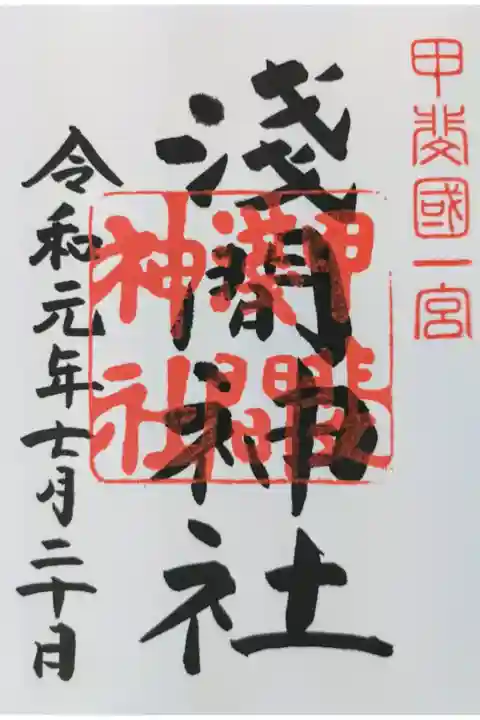 甲斐國一宮
淺間神社
甲斐
淺間
神社
令和元年七月二十日